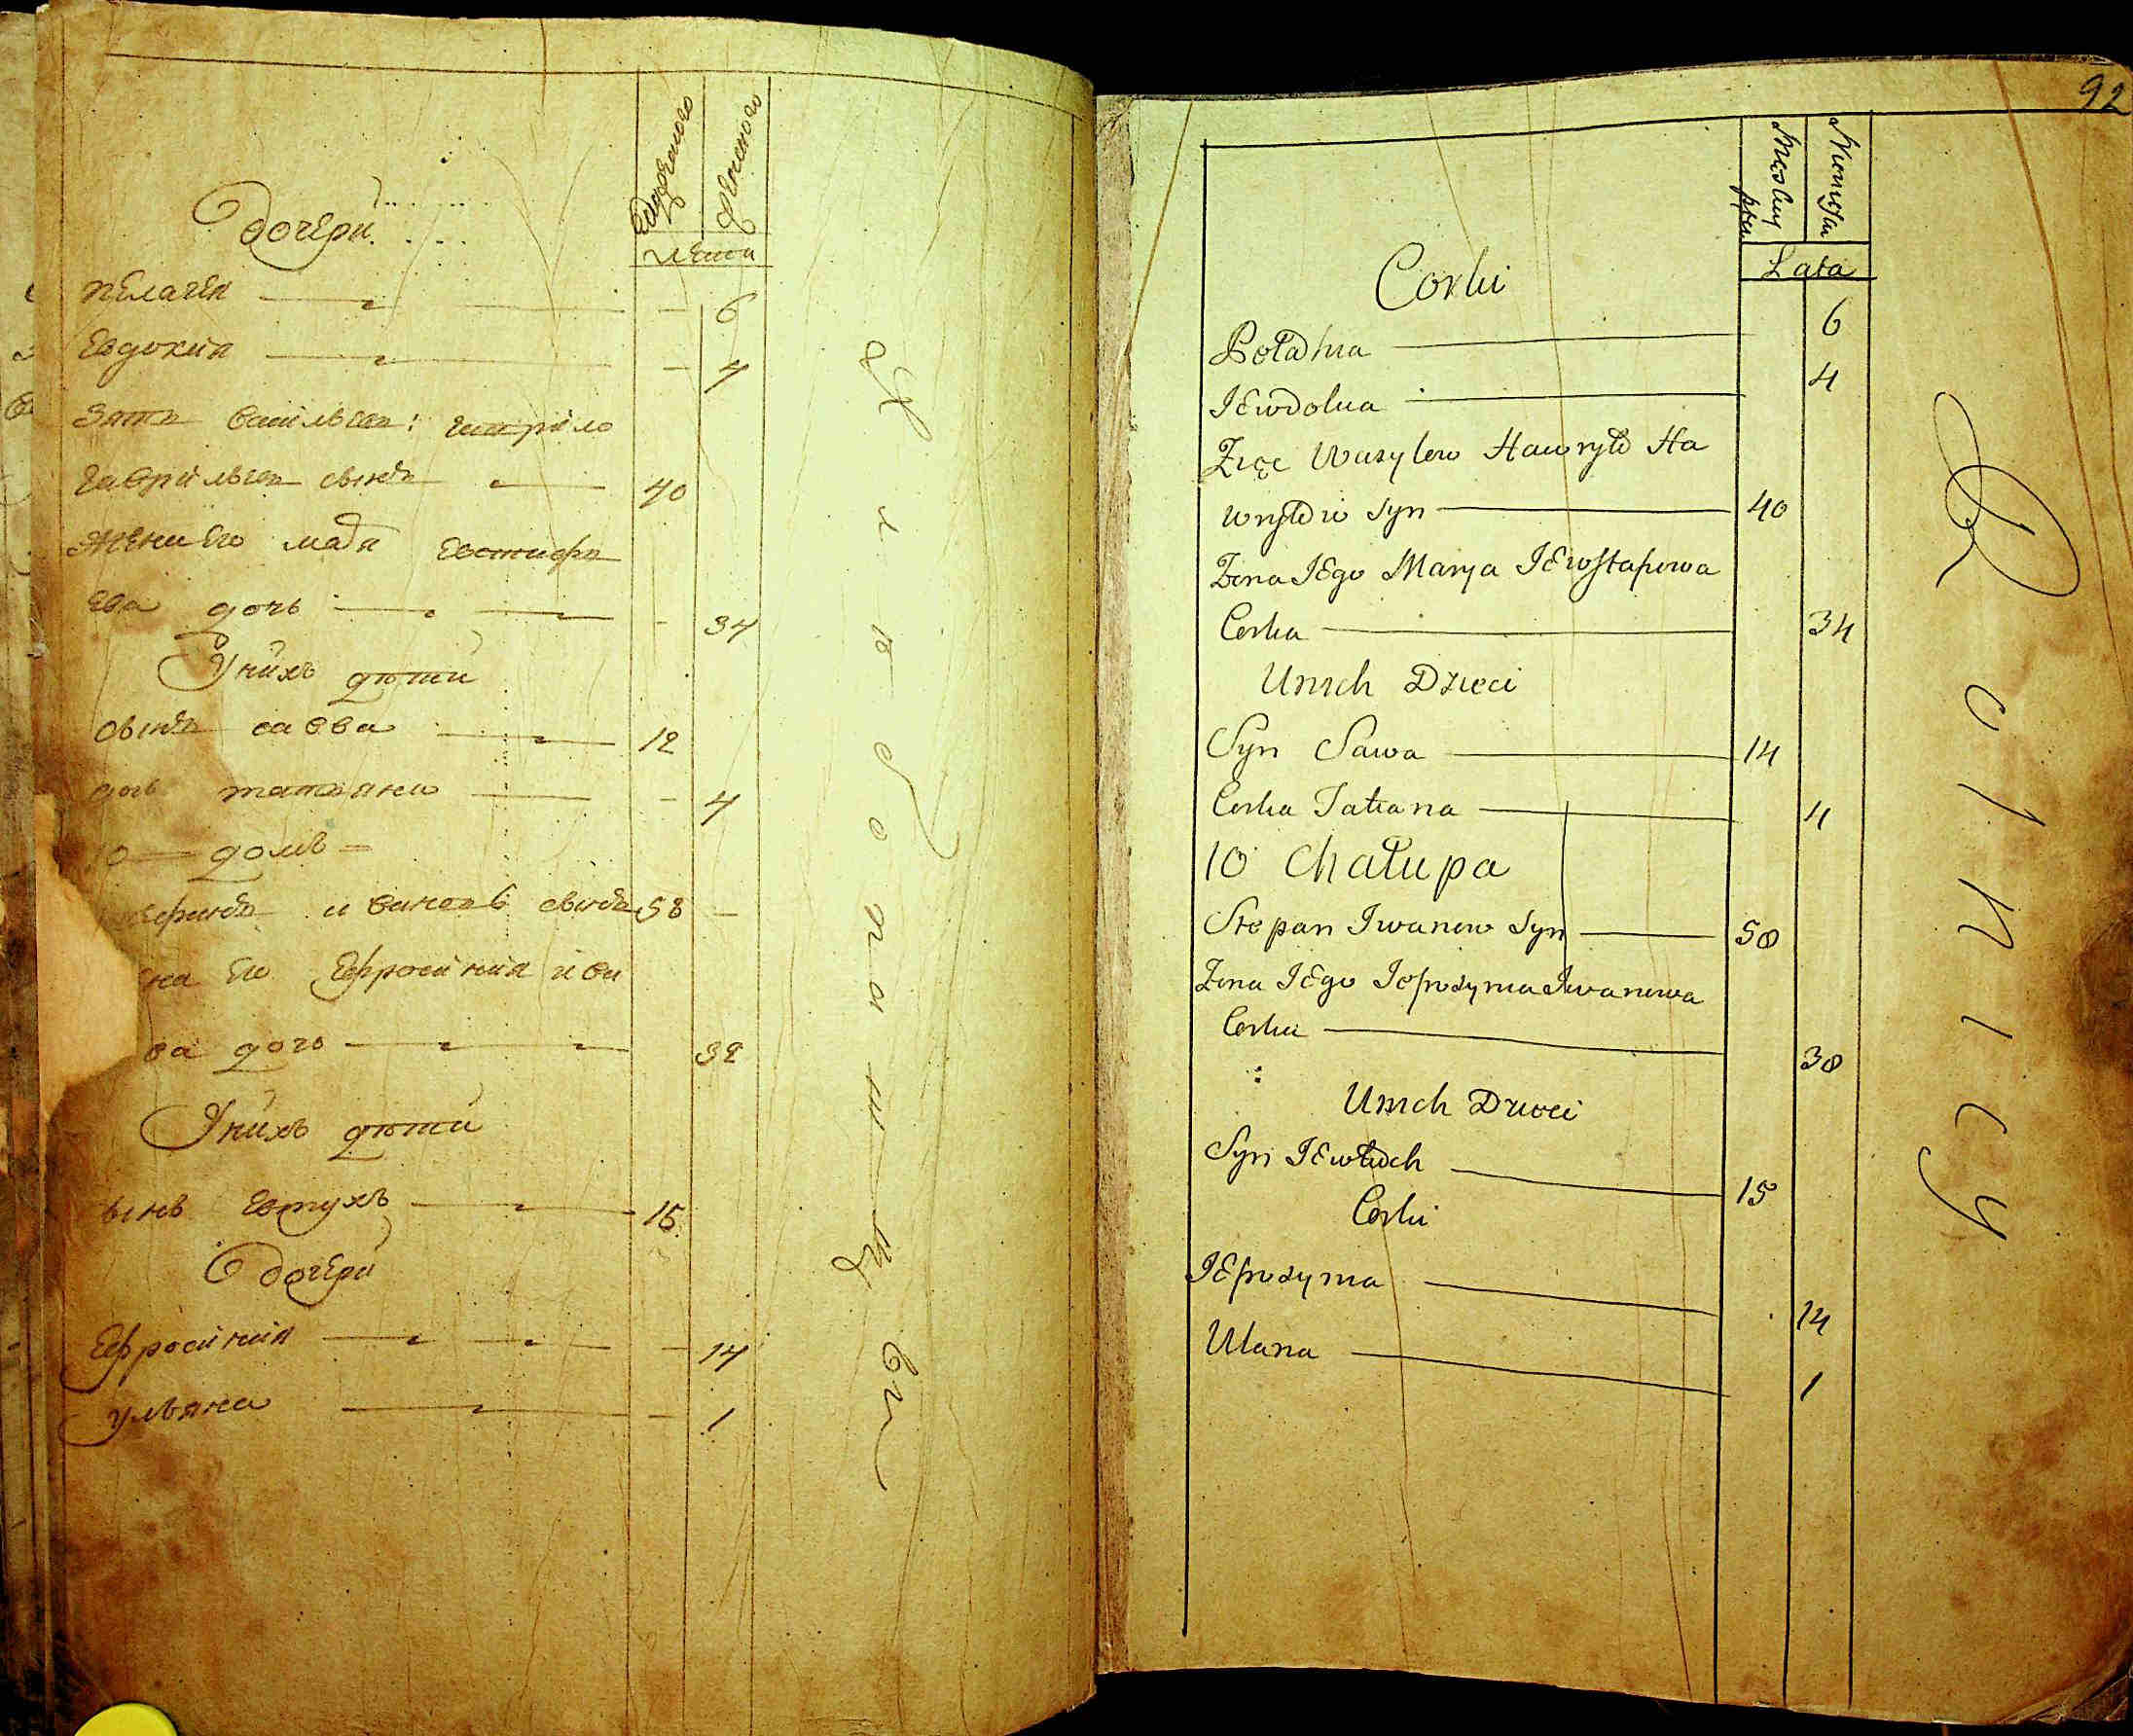 дочери
мужеского
женского
Лета
пелагея 6
Евдокия 4
Зять васильевъ: гаврило
гаврильевъ сынъ 40
жена Его маря Евстафи
ева дочь 34
Унихъ дѣти
сынъ савва 12
дочь татьяна 4
10 домъ
ивановъ сынъ 58
на Его Ефросиния ива
ва дочь 38
Унихъ дѣти
ынъ Евтухъ 15
дочери
Ефросиния 14
ульяна 1
92
Męskey płci
Niewiesta
Lata
Corki
Połahia 6
JEwdokia 4
Zięc Wasylow Hawryło Ha
wryłow Syn 40
Zona JEgo Marya JEwstafiowa
Corka 34
Unich Dzieci
Syn Sawa 14
Corka Tatiana 4
10 Chałupa
Stepan Iwanow Syn 58
Zona JEgo Jefrozynia Iwanowa
Corka 38
Unich Dzieci
Syn JEwtuch 15
Corki
JEfrozynia 14
Ulana 1
Rolnicy